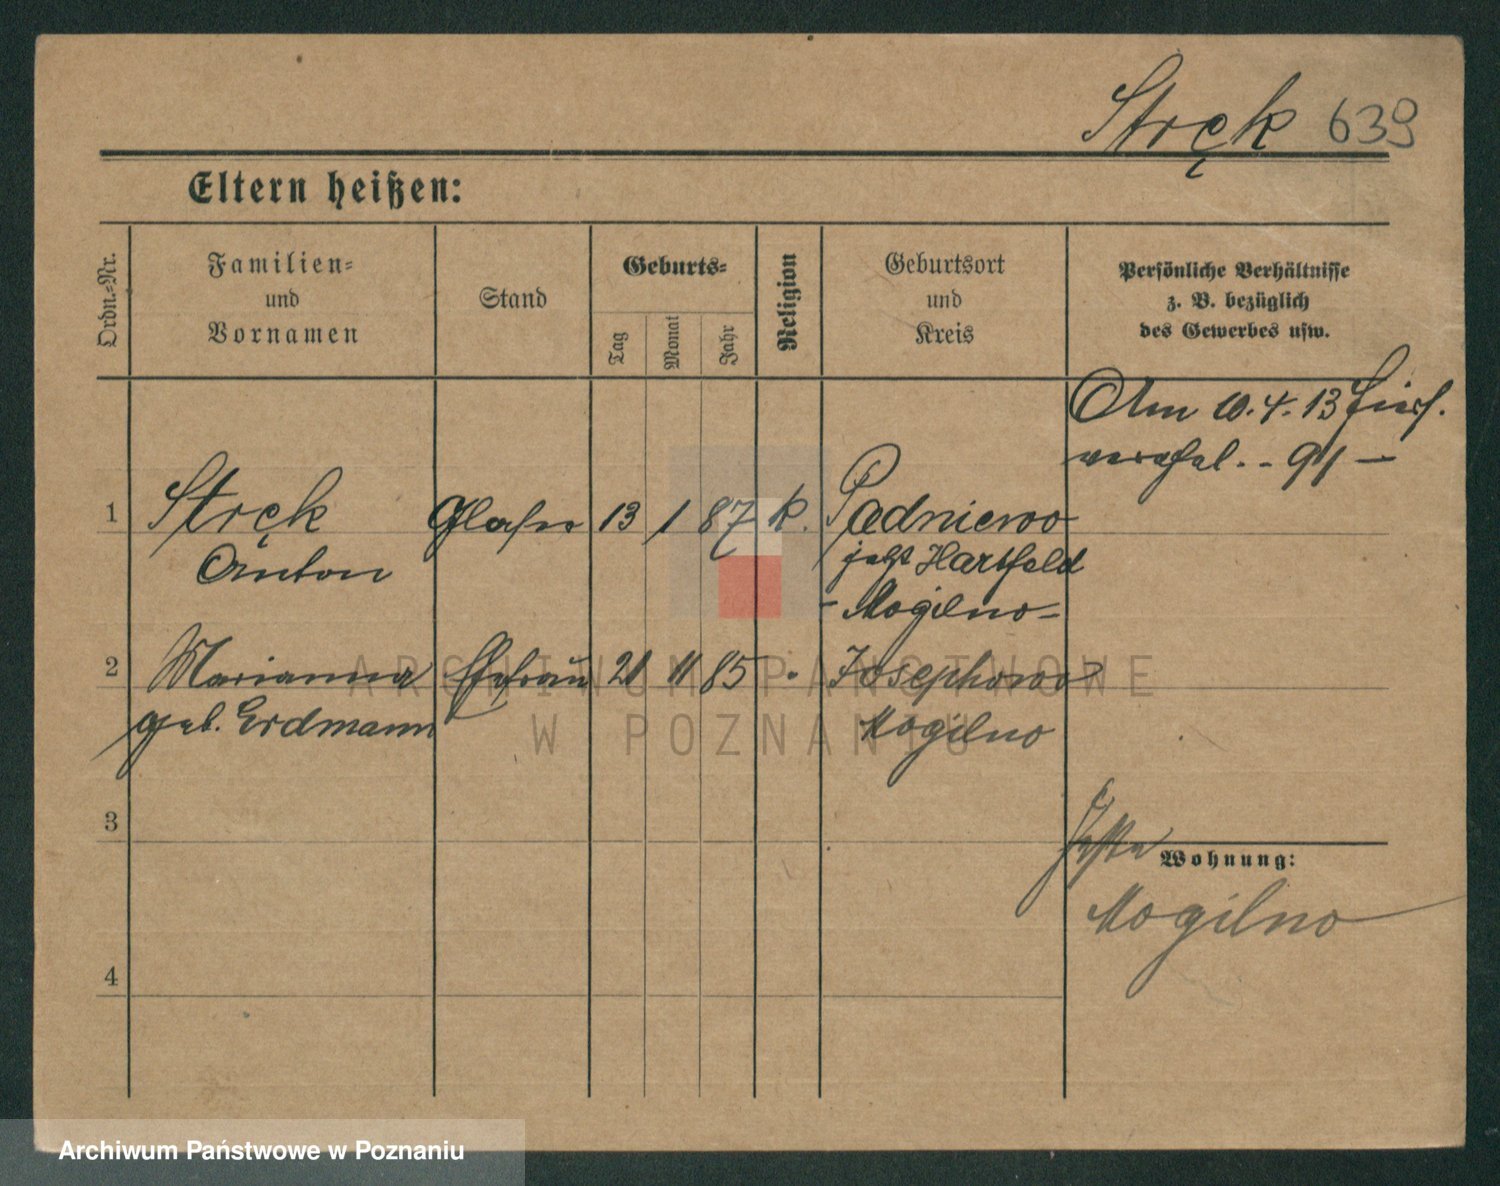 Stręk 639
Eltern heißen:
Ordn.-Nr.
Familien-
und
Vornamen
Stand
Geburts-
Tag
Monat
Jahr
Religion
Geburtsort
und
Kreis
Persönliche Verhältnisse
z. B. bezüglich
des Gewerbes usw.
Am 10.4.13 hier
verehel.
1 Stręk Glaser 13 1 87 k. Padniewo
Anton jetzt Hartfeld
- Mogilno -
2 Marianna Ehefrau 21 11 85 " Josephowo
geb. Erdmann Mogilno
3
Wohnung:
Mogilno
4
ARCHIWUM PAŃSTWOWE
W POZNANIU
Archiwum Państwowe w Poznaniu